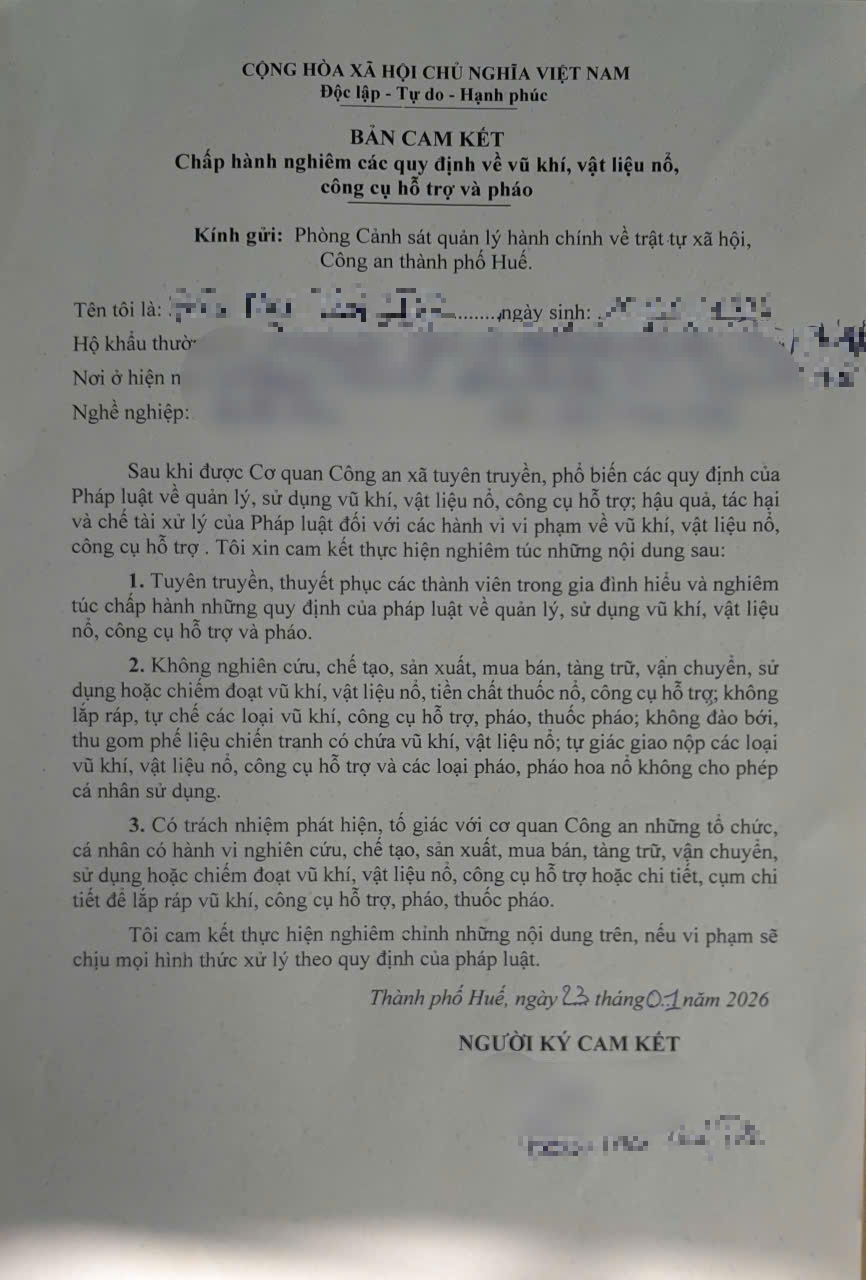 CỘNG HÒA XÃ HỘI CHỦ NGHĨA VIỆT NAM
Độc lập - Tự do - Hạnh phúc
BẢN CAM KẾT
Chấp hành nghiêm các quy định về vũ khí, vật liệu nổ,
công cụ hỗ trợ và pháo
Kính gửi: Phòng Cảnh sát quản lý hành chính về trật tự xã hội,
Công an thành phố Huế.
Tên tôi là: ..........,ngày sinh:
Hộ khẩu
Nơi ở hiện
Nghề nghiệp:
Sau khi được Cơ quan Công an xã tuyên truyền, phổ biến các quy định của
Pháp luật về quản lý, sử dụng vũ khí, vật liệu nổ, công cụ hỗ trợ; hậu quả, tác hại
và chế tài xử lý của Pháp luật đối với các hành vi vi phạm về vũ khí, vật liệu nổ,
công cụ hỗ trợ . Tôi xin cam kết thực hiện nghiêm túc những nội dung sau:
1. Tuyên truyền, thuyết phục các thành viên trong gia đình hiểu và nghiêm
túc chấp hành những quy định của pháp luật về quản lý, sử dụng vũ khí, vật liệu
nổ, công cụ hỗ trợ và pháo.
2. Không nghiên cứu, chế tạo, sản xuất, mua bán, tàng trữ, vận chuyển, sử
dụng hoặc chiếm đoạt vũ khí, vật liệu nổ, tiền chất thuốc nổ, công cụ hỗ trợ; không
lắp ráp, tự chế các loại vũ khí, công cụ hỗ trợ, pháo, thuốc pháo; không đào bới,
thu gom phế liệu chiến tranh có chứa vũ khí, vật liệu nổ; tự giác giao nộp các loại
vũ khí, vật liệu nổ, công cụ hỗ trợ và các loại pháo, pháo hoa nổ không cho phép
cá nhân sử dụng.
3. Có trách nhiệm phát hiện, tố giác với cơ quan Công an những tổ chức,
cá nhân có hành vi nghiên cứu, chế tạo, sản xuất, mua bán, tàng trữ, vận chuyển,
sử dụng hoặc chiếm đoạt vũ khí, vật liệu nổ, công cụ hỗ trợ hoặc chi tiết, cụm chi
tiết để lắp ráp vũ khí, công cụ hỗ trợ, pháo, thuốc pháo.
Tôi cam kết thực hiện nghiêm chỉnh những nội dung trên, nếu vi phạm sẽ
chịu mọi hình thức xử lý theo quy định của pháp luật.
Thành phố Huế, ngày 23 tháng 01 năm 2026
NGƯỜI KÝ CAM KẾT